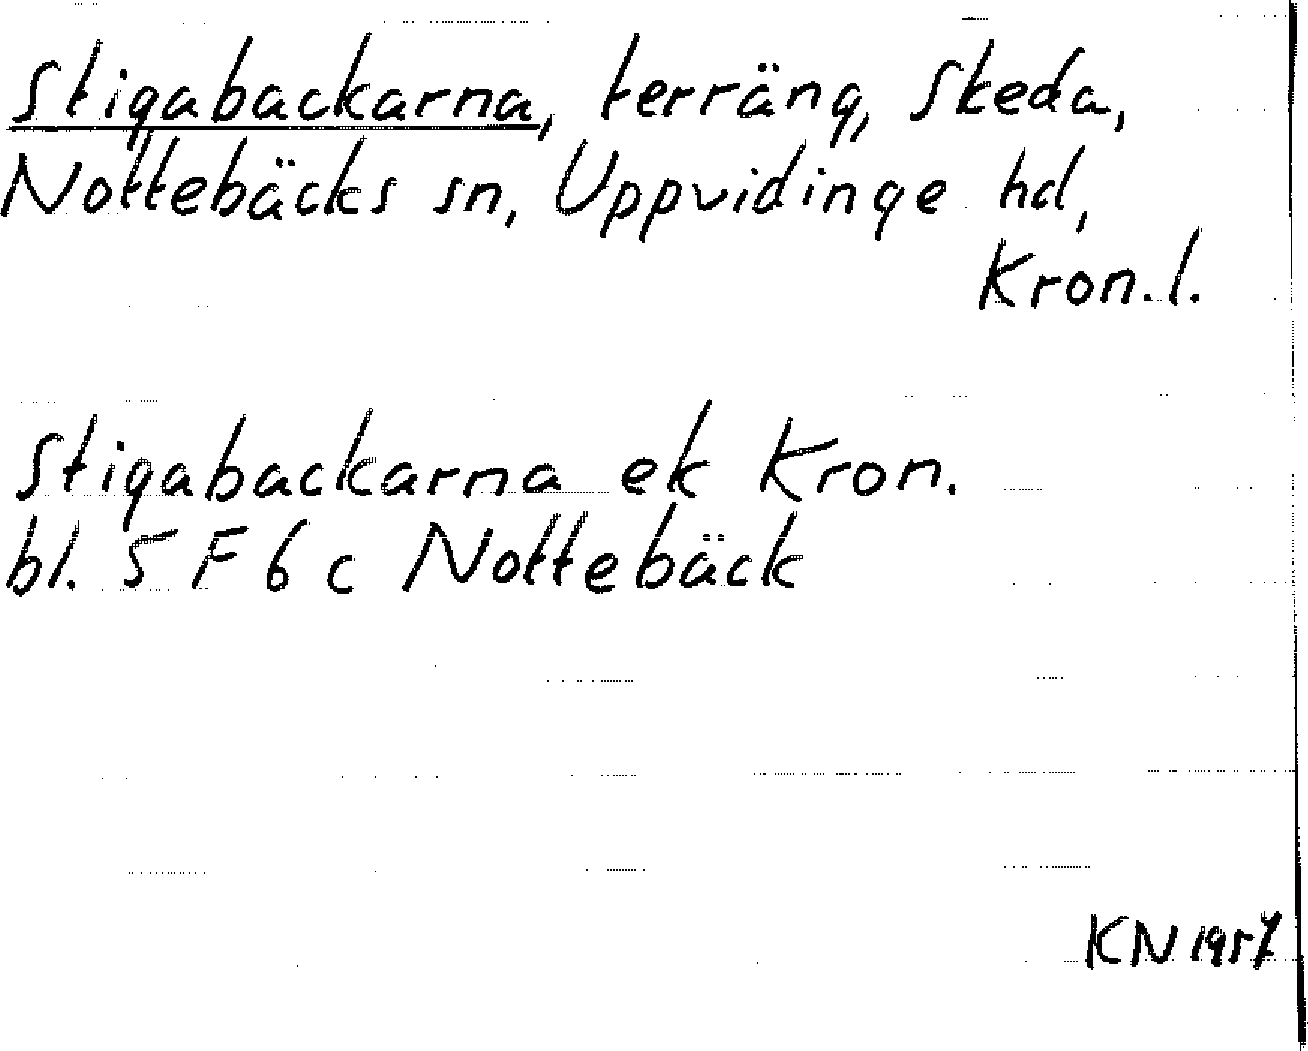 Stigabackarna, terräng, Skeda,
Nottebäcks sn, Uppvidinge hd,
Kron. l.
Stigabackarna ek Kron.
bl. 5 F 6 c Nottebäck
KN 1957